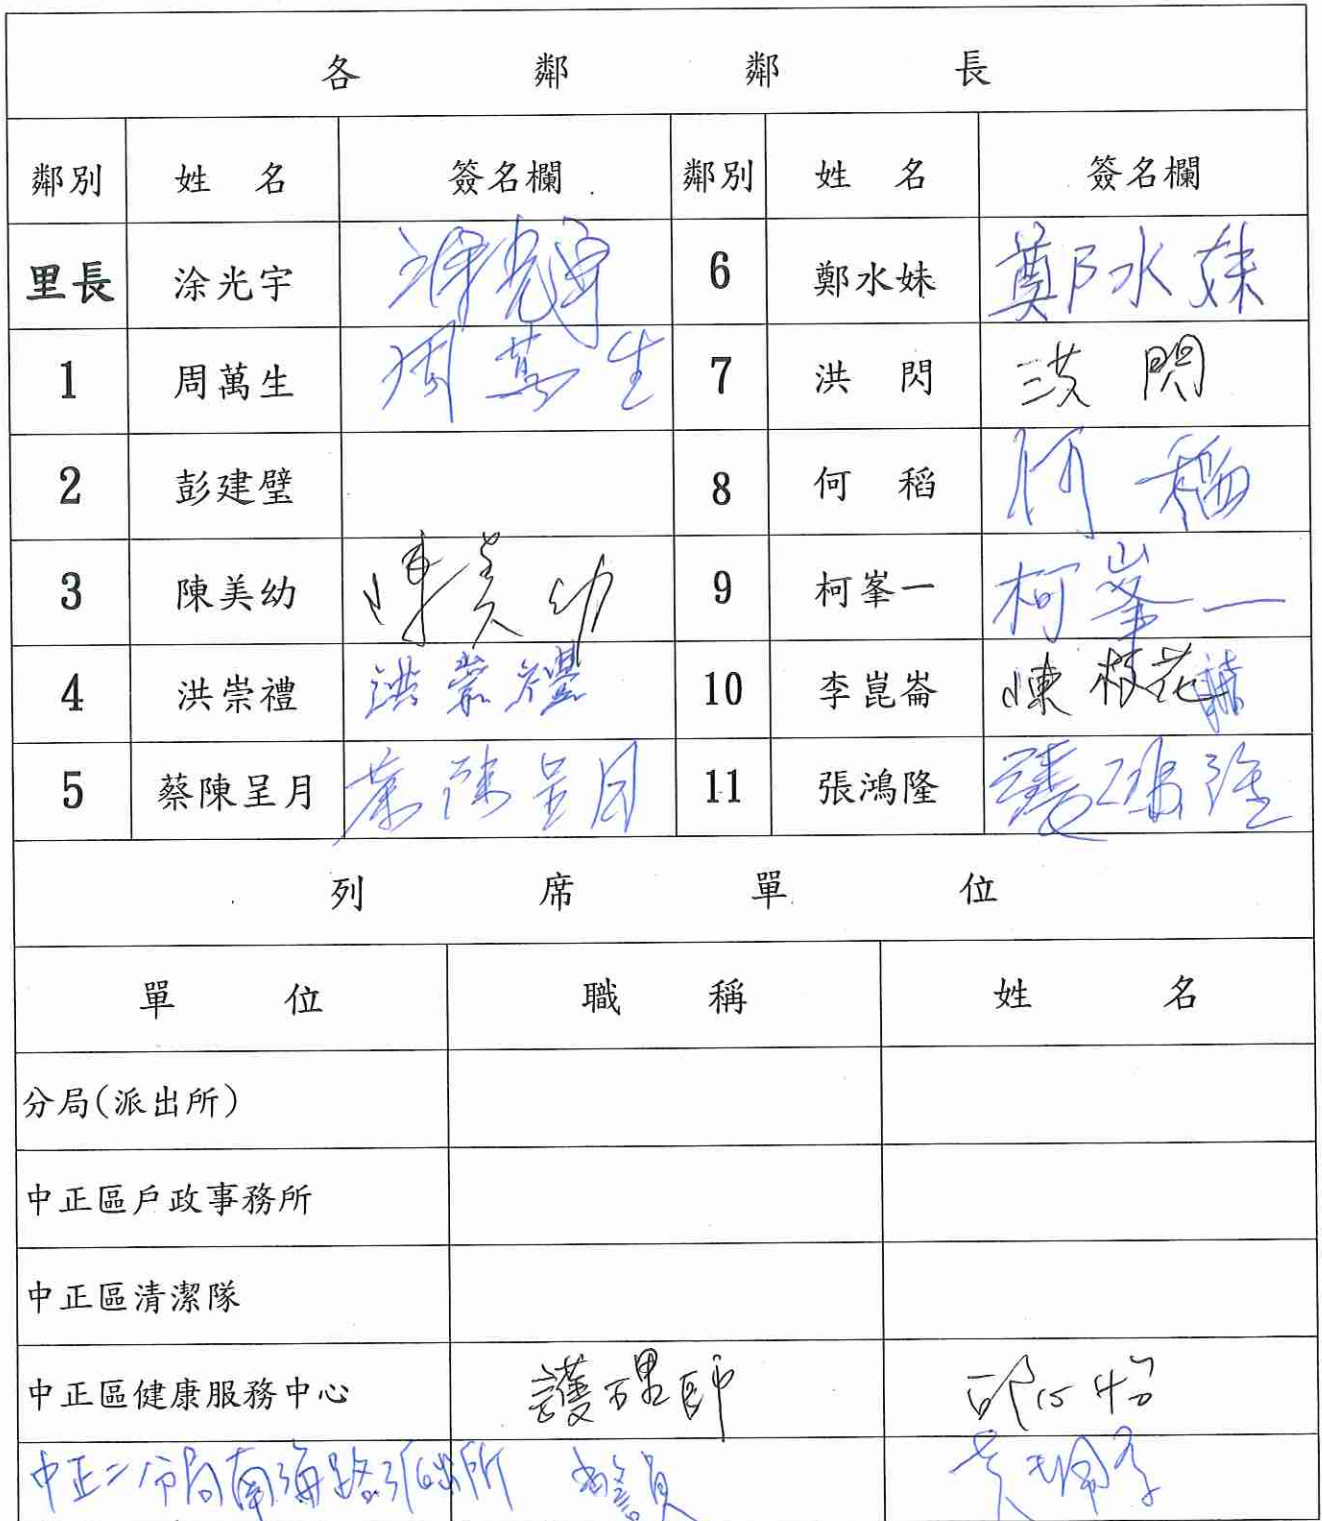 各鄰鄰長
鄰別 姓名 簽名欄 鄰別 姓名 簽名欄
里長 涂光宇 涂光宇 6 鄭水妹 鄭水妹
1 周萬生 周萬生 7 洪閃 洪閃
2 彭建璧 8 何稻 何稻
3 陳美幼 陳美幼 9 柯峯一 柯峯一
4 洪崇禮 洪崇禮 10 李崑崙 陳枝花
5 蔡陳呈月 蔡陳呈月 11 張鴻隆 張鴻隆
列席單位
單位 職稱 姓名
分局(派出所)
中正區戶政事務所
中正區清潔隊
中正區健康服務中心 護理師
中正二分局南海路派出所 警員